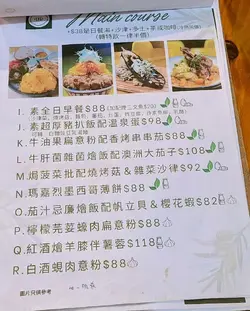 Main course
+$38配全日餐湯+沙律+多士+茶或咖啡
(轉特飲一律半價)
I. 素全日早餐$88
J. 素超厚豬扒飯配溫泉蛋$98
K. 牛油果扁意粉配香烤串串茄$88
L. 牛肝菌雜菌燴飯配澳洲大茄子$108
M. 焗菠菜批配燒烤菇&雜菜沙律$92
N. 瑪嘉烈墨西哥薄餅$88
O. 茄汁忌廉燴飯配帆立貝&櫻花蝦$82
P. 檸檬芫荽蠔肉扁意粉$88
Q. 紅酒燴羊膝伴薯蓉$118
R. 白酒蜆肉意粉$88
圖片只供參考